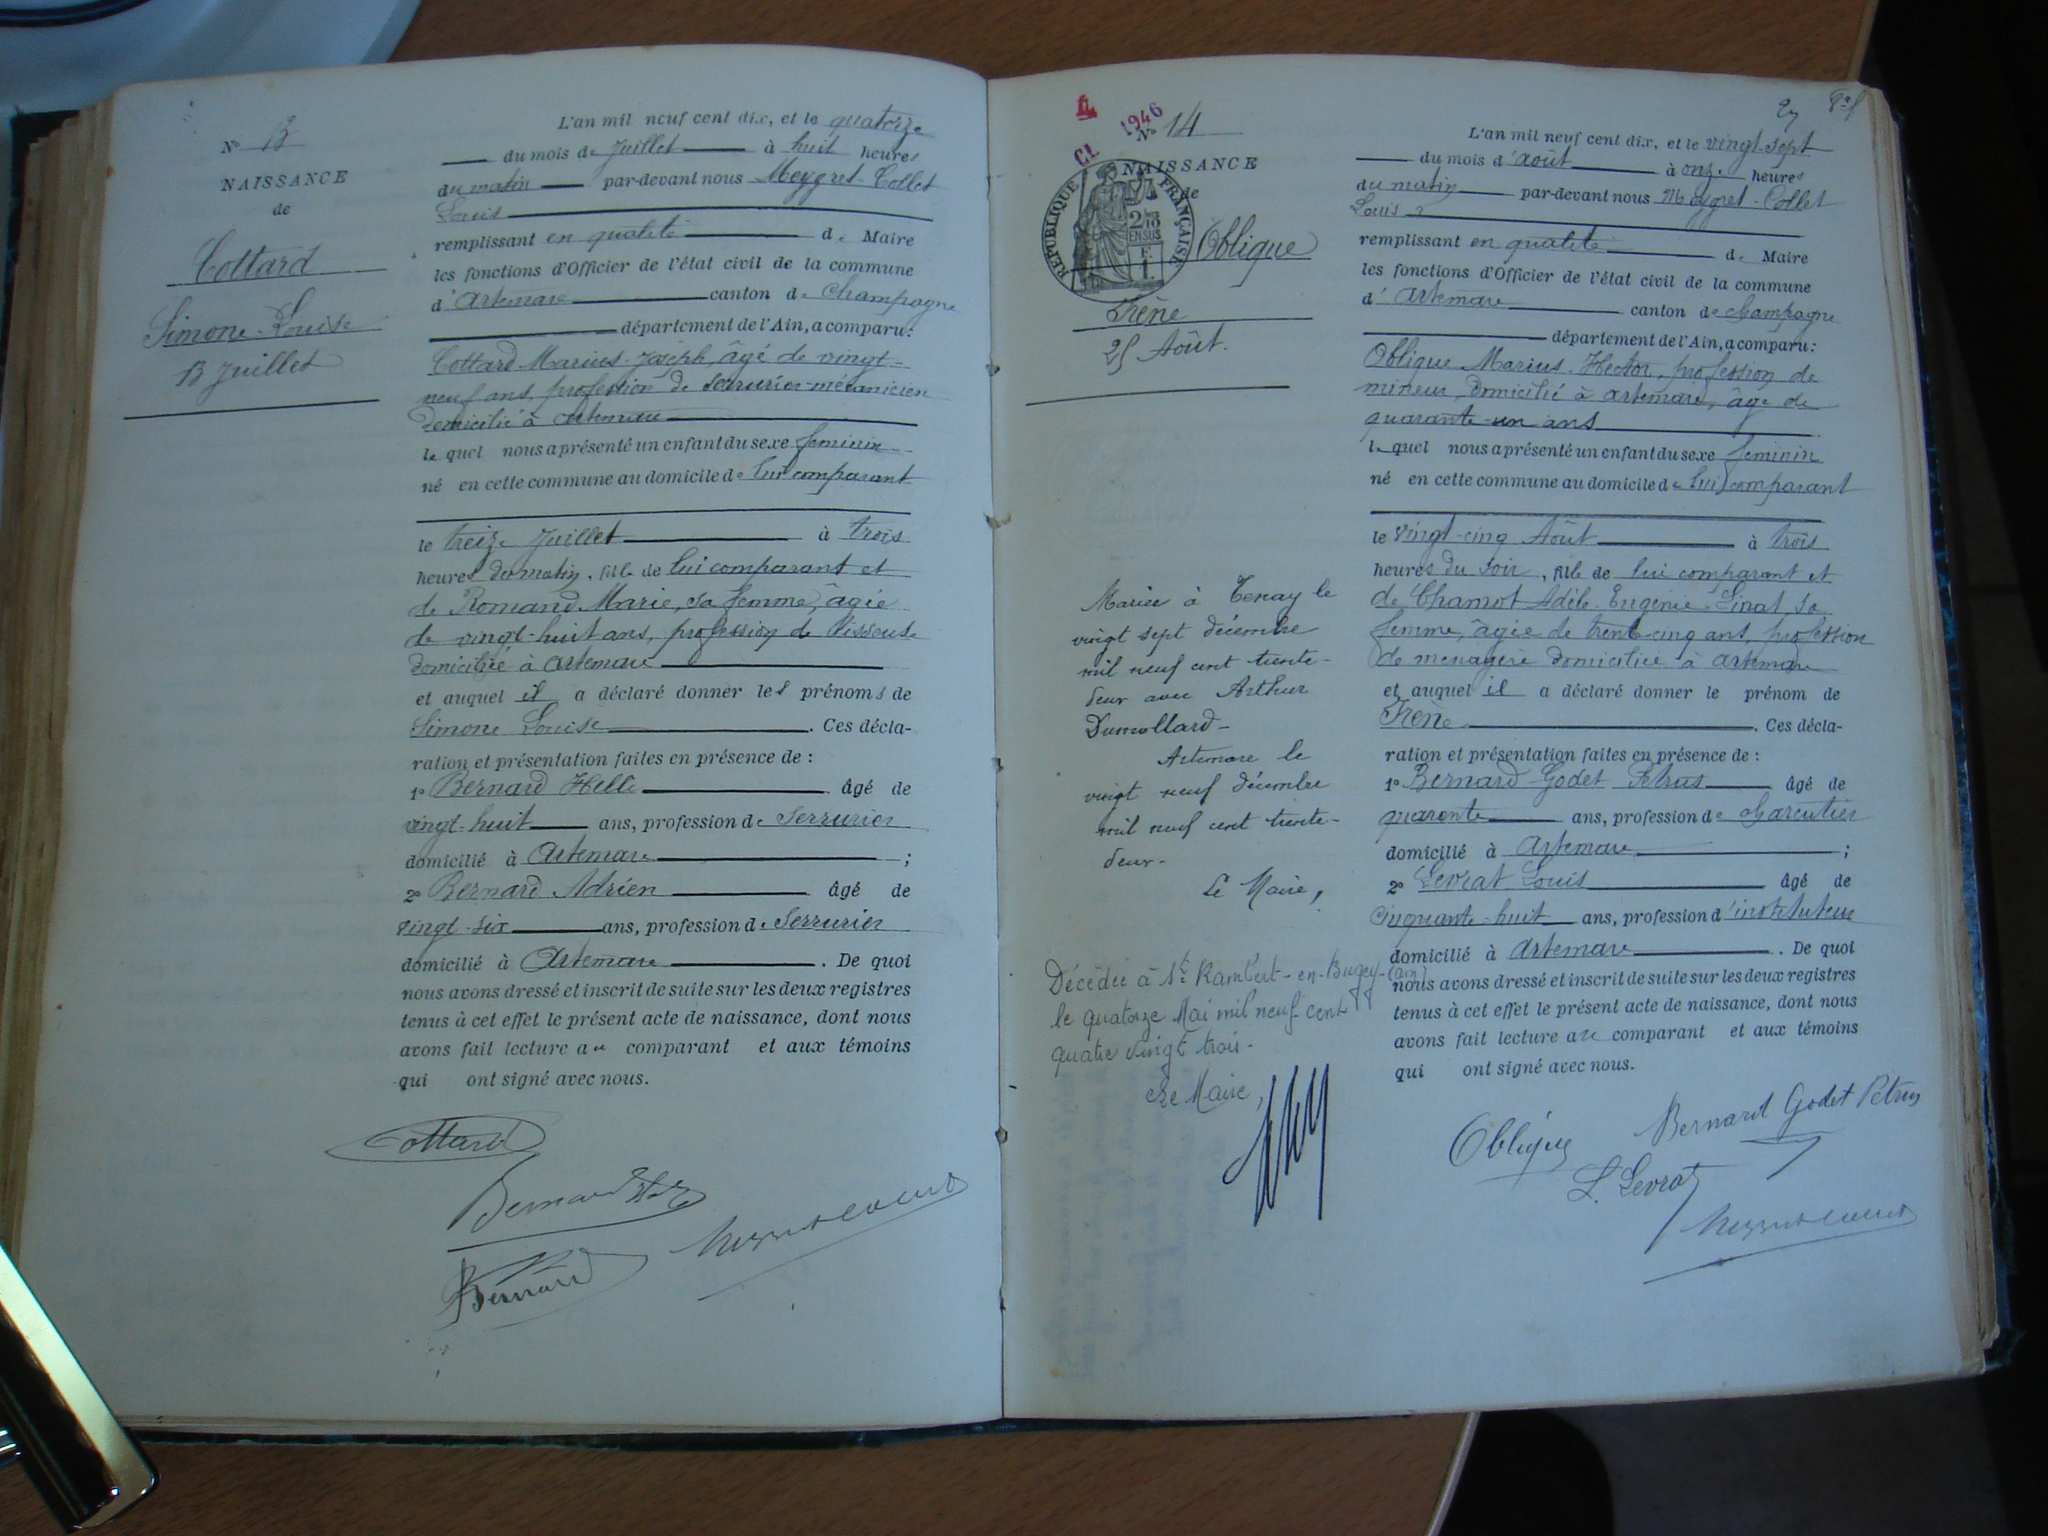 N° 13
NAISSANCE
de
Cottard
Simone-Louise
13 Juillet
L'an mil neuf cent dix, et le quatorze
du mois de Juillet à huit heures
du matin par-devant nous Meygret-Collet
Louis
remplissant en qualité de Maire
les fonctions d'Officier de l'état civil de la commune
d'Artemare canton de Champagne
département de l'Ain, a comparu:
Cottard Marius-Joseph, âgé de vingt-
neuf ans, profession de serrurier-mécanicien
domicilié à Artemare
lequel nous a présenté un enfant du sexe féminin
né en cette commune au domicile de lui comparant
le treize Juillet à trois
heures du matin, fille de lui comparant et
de Romand Marie, sa femme, âgée
de vingt-huit ans, profession de Tisseuse
domiciliée à Artemare
et auquel il a déclaré donner les prénoms de
Simone Louise. Ces décla-
ration et présentation faites en présence de :
1° Bernard âgé de
vingt-huit ans, profession de Serrurier
domicilié à Artemare ;
2° Bernard Adrien âgé de
vingt-six ans, profession de Serrurier
domicilié à Artemare. De quoi
nous avons dressé et inscrit de suite sur les deux registres
tenus à cet effet le présent acte de naissance, dont nous
avons fait lecture au comparant et aux témoins
qui ont signé avec nous.
Cottard
Bernard
Meygret-Collet
Bernard
1946
N° 14
NAISSANCE
de
RÉPUBLIQUE FRANÇAISE
2/10
EN SUS
F.
1.
Oblique
Irène
25 Août.
Mariée à Tenay le
vingt sept décembre
mil neuf cent trente-
deux avec Arthur
Dumollard-
Artemare le
vingt neuf décembre
mil neuf cent trente-
deux-
Le Maire,
Décédée à St Rambert-en-Bugey-(ain)
le quatorze Mai mil neuf cent
quatre vingt trois-
Le Maire,
27
L'an mil neuf cent dix, et le vingt-sept
du mois d'août à onze heures
du matin par-devant nous Meygret-Collet
Louis
remplissant en qualité de Maire
les fonctions d'Officier de l'état civil de la commune
d'Artemare canton de Champagne
département de l'Ain, a comparu:
Oblique Marius-Hector, profession de
mineur, domicilié à Artemare, âgé de
quarante-un ans
lequel nous a présenté un enfant du sexe féminin
né en cette commune au domicile de lui comparant
le vingt-cinq Août à trois
heures du soir, fille de lui comparant et
de Chamot Adèle-Eugénie sa
femme, âgée de trente-cinq ans, profession
de ménagère domiciliée à Artemare
et auquel il a déclaré donner le prénom de
Irène. Ces décla-
ration et présentation faites en présence de :
1° Bernard Godet Pétrus âgé de
quarante ans, profession de Charcutier
domicilié à Artemare ;
2° Levrat Louis âgé de
cinquante-huit ans, profession d'instituteur
domicilié à Artemare. De quoi
nous avons dressé et inscrit de suite sur les deux registres
tenus à cet effet le présent acte de naissance, dont nous
avons fait lecture au comparant et aux témoins
qui ont signé avec nous.
Oblique
Bernard Godet Pétrus
L. Levrat
Meygret-Collet